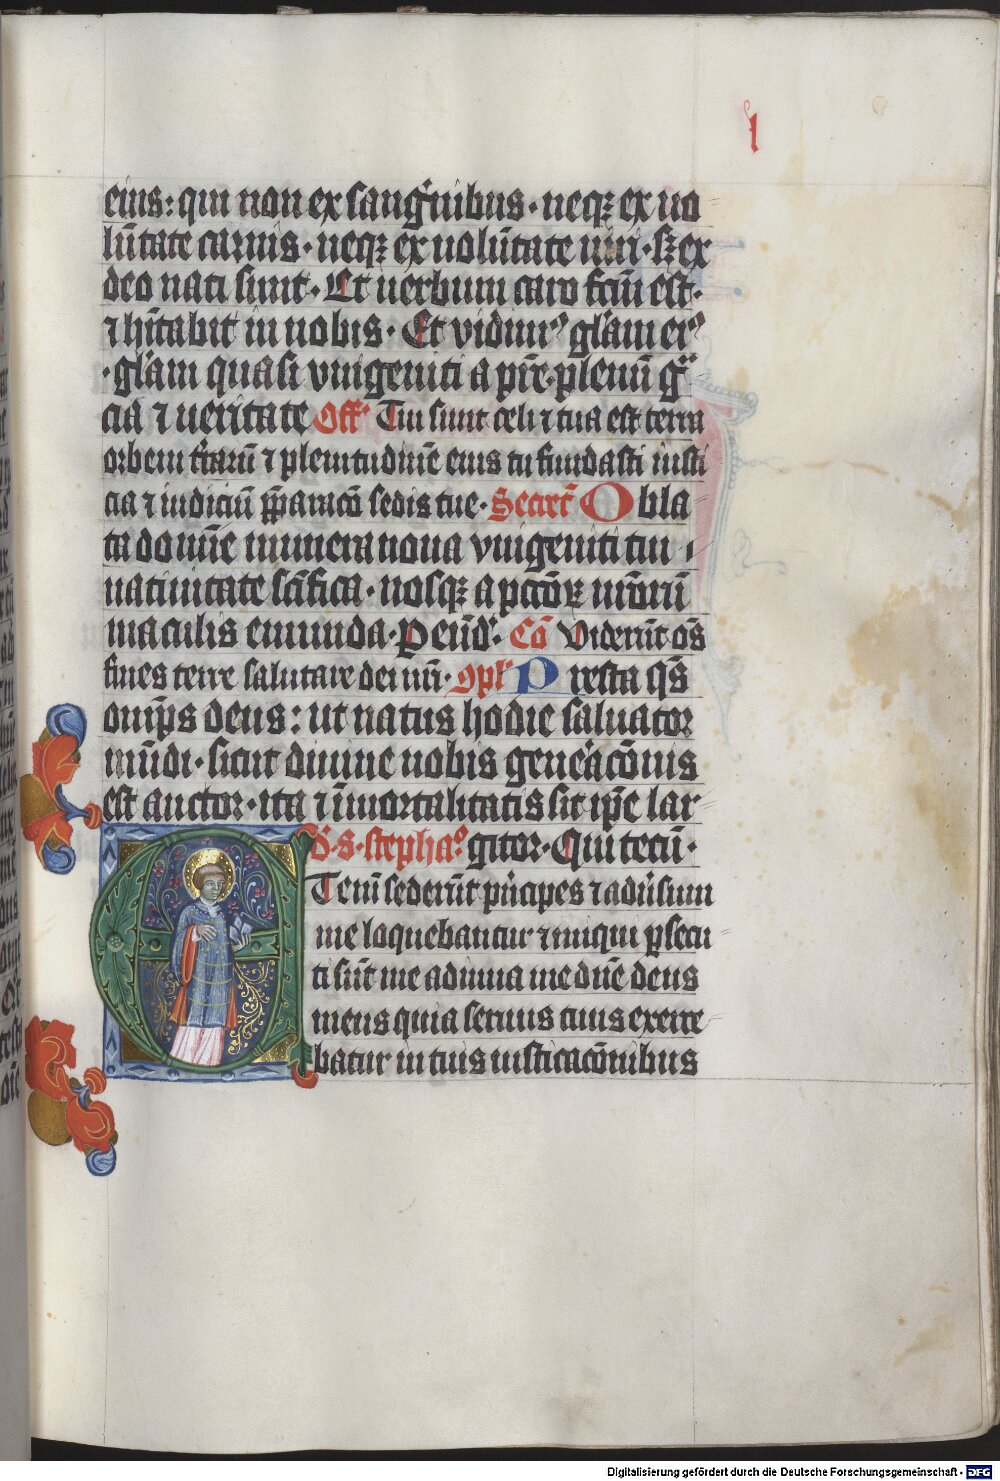 l
eius: qui non ex sang͛uinibus. neqꝫ ex uo
lūtate carnis. neqꝫ ex uolūtate uiri. sꝫ ex
deo nati sunt. Et uerbum caro fc̄m est.
⁊ hītabit in nobis. Et vidimꝰ gl̄am eiꝰ
. gl̄am quasi vnigeniti a pr̄e. plenū gᷓ
cia ⁊ ueritate Off. Tui sunt celi ⁊ tua est terra
orbem t͛rarū ⁊ plenitudinē eius tu fundasti iusti
cia ⁊ iudiciū p̄paracō sedis tue. Secret͛ Obla
ta domīe munera noua vnigeniti tui
natiuitate scīfica. nosqꝫ a pctōꝝ nr̄orū
maculis emunda. P eūd. Cō Viderūt oēs
fines terre salutare dei nr̄i. 9pl͛ Presta qs̄
omīps deus: ut natus hodie saluator
mūdi. sicut diuine nobis gen͛acōnis
est auctor. ita ⁊ īmortalitatis sit ip̄e lar
D͛. s. stephaꝰ gitor. Qui tecū.
Tenī sederūt p͛ncipes ⁊ adūsum
me loquebantur ⁊ iniqui ꝑsecu
ti sūt me adiuua me dn̄e deus
meus quia seruus tuus exerce
batur in tuis iustificacōnibus
Digitalisierung gefördert durch die Deutsche Forschungsgemeinschaft - DFG